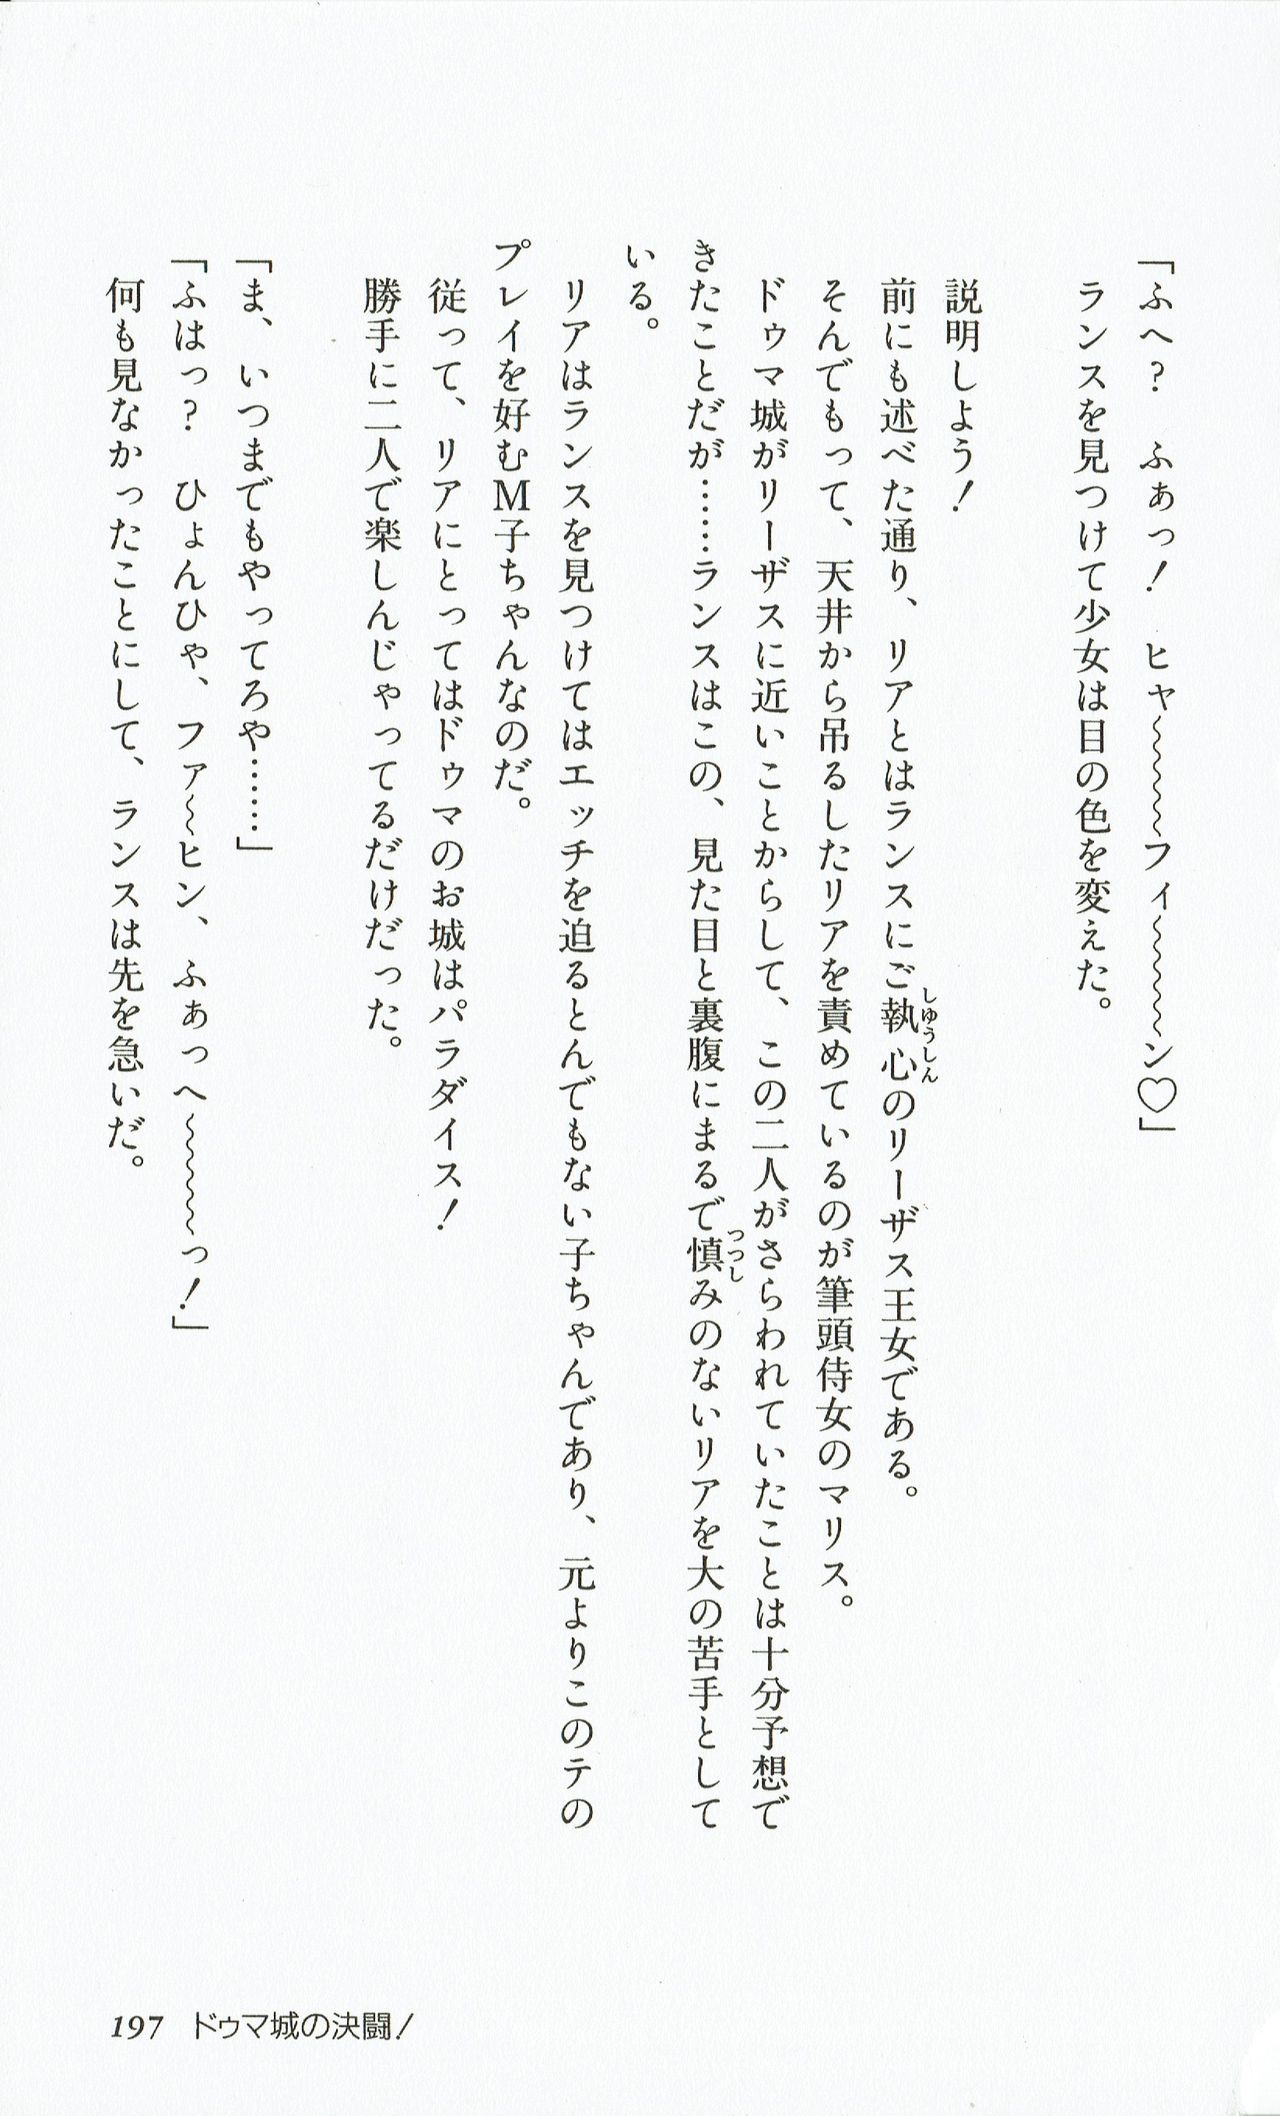 「ふへ？　ふぁっ！　ヒャ〜〜〜〜フィ〜〜〜〜ン♡」
ランスを見つけて少女は目の色を変えた。
説明しよう！
前にも述べた通り、リアとはランスにご執心のリーザス王女である。
しゅうしん
そんでもって、天井から吊るしたリアを責めているのが筆頭侍女のマリス。
ドゥマ城がリーザスに近いことからして、この二人がさらわれていたことは十分予想で
きたことだが……ランスはこの、見た目と裏腹にまるで慎みのないリアを大の苦手として
つつし
いる。
リアはランスを見つけてはエッチを迫るとんでもない子ちゃんであり、元よりこのテの
プレイを好むM子ちゃんなのだ。
従って、リアにとってはドゥマのお城はパラダイス！
勝手に二人で楽しんじゃってるだけだった。
「ま、いつまでもやってろや……」
「ふはっ？　ひょんひゃ、ファ〜〜ヒン、ふぁっへ〜〜〜〜っ！」
何も見なかったことにして、ランスは先を急いだ。
197　ドゥマ城の決闘！